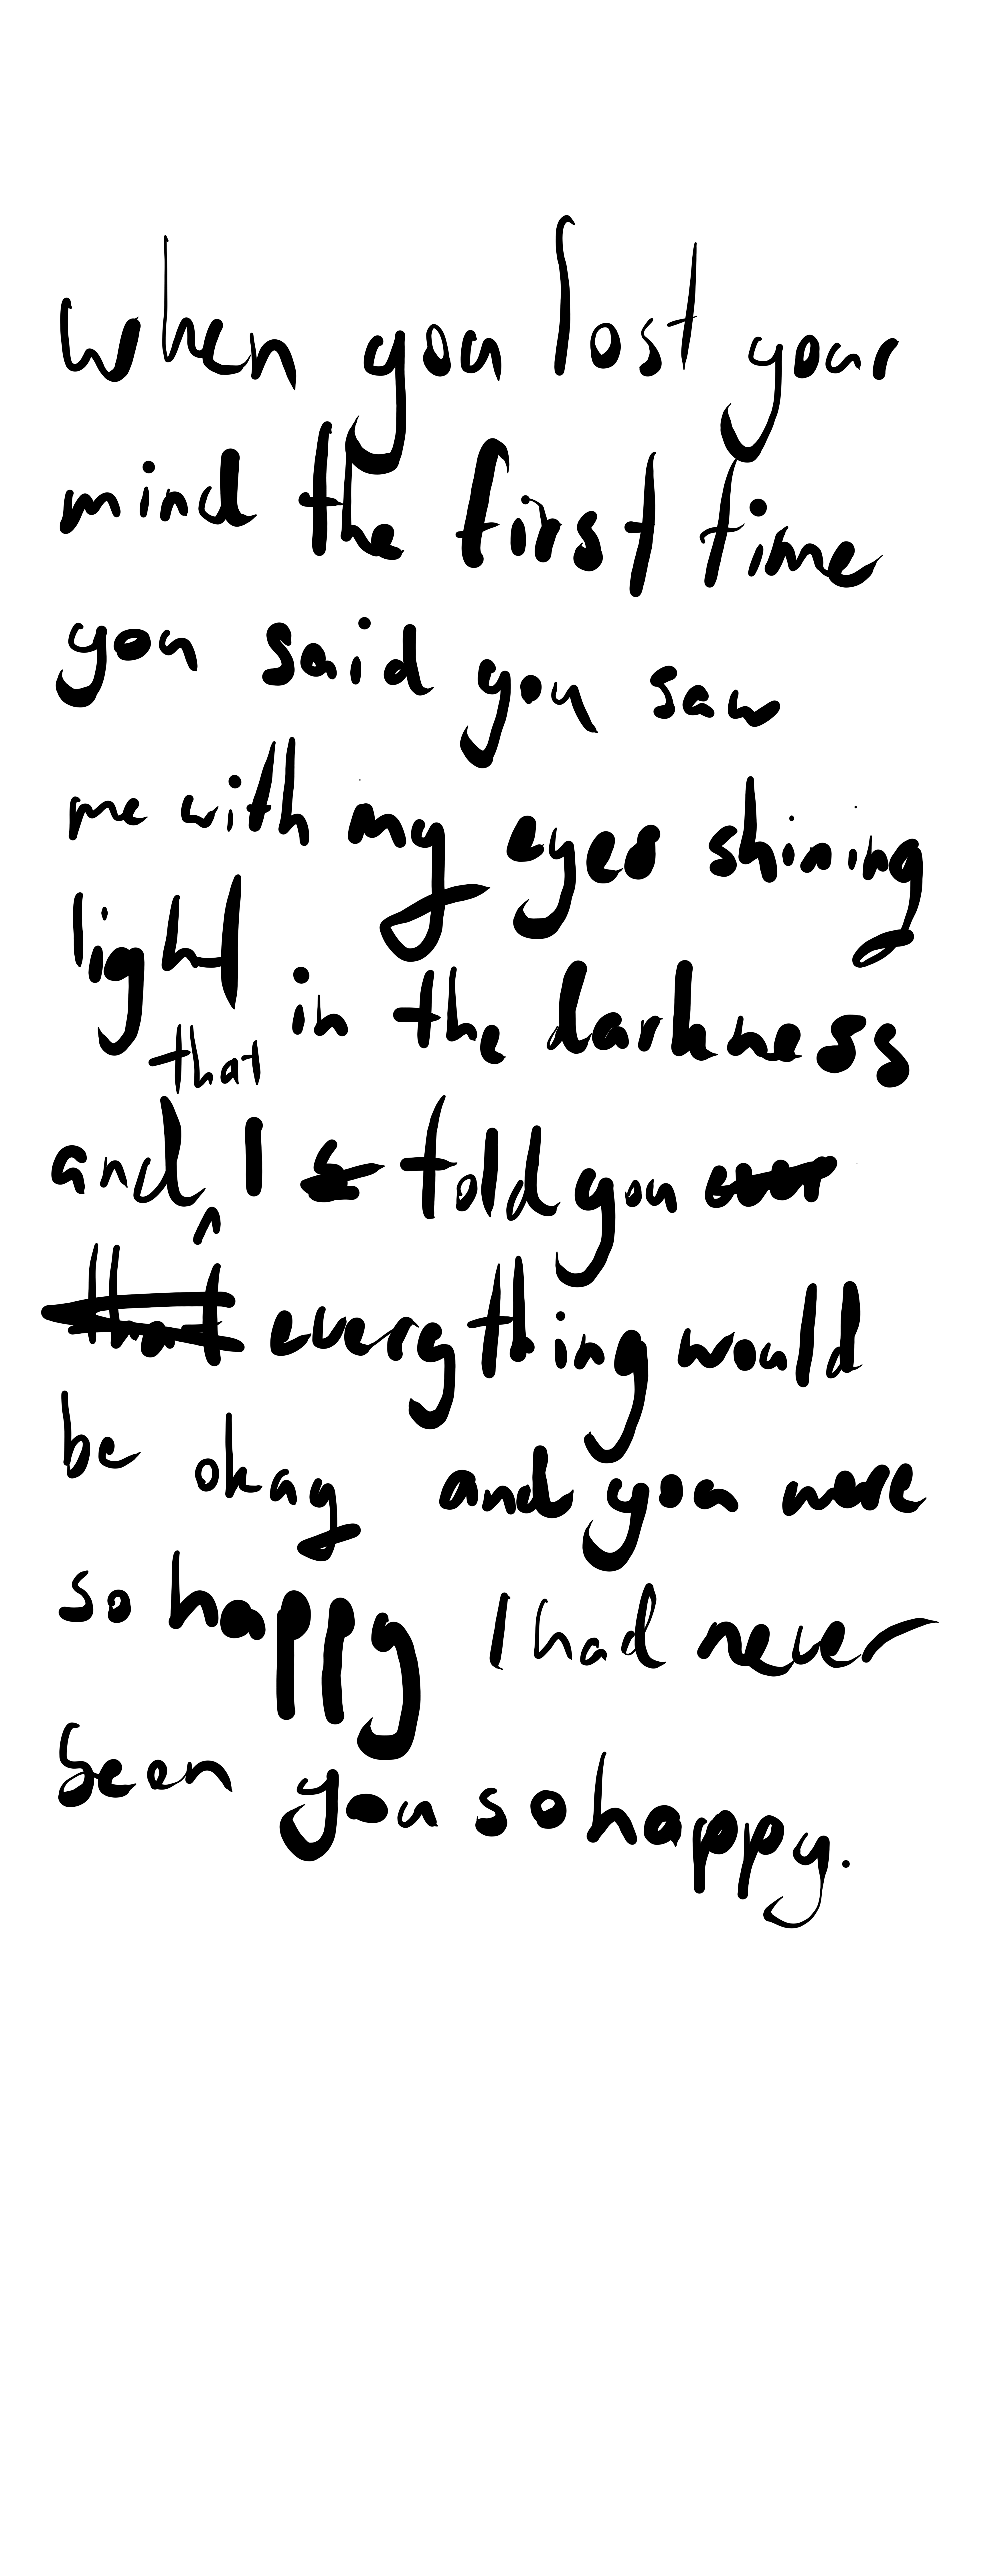 when you lost your
mind the first time
you said you saw
me with my eyes shining
light in the darkness
that
and I told you
that everything would
be okay and you were
so happy I had never
seen you so happy.